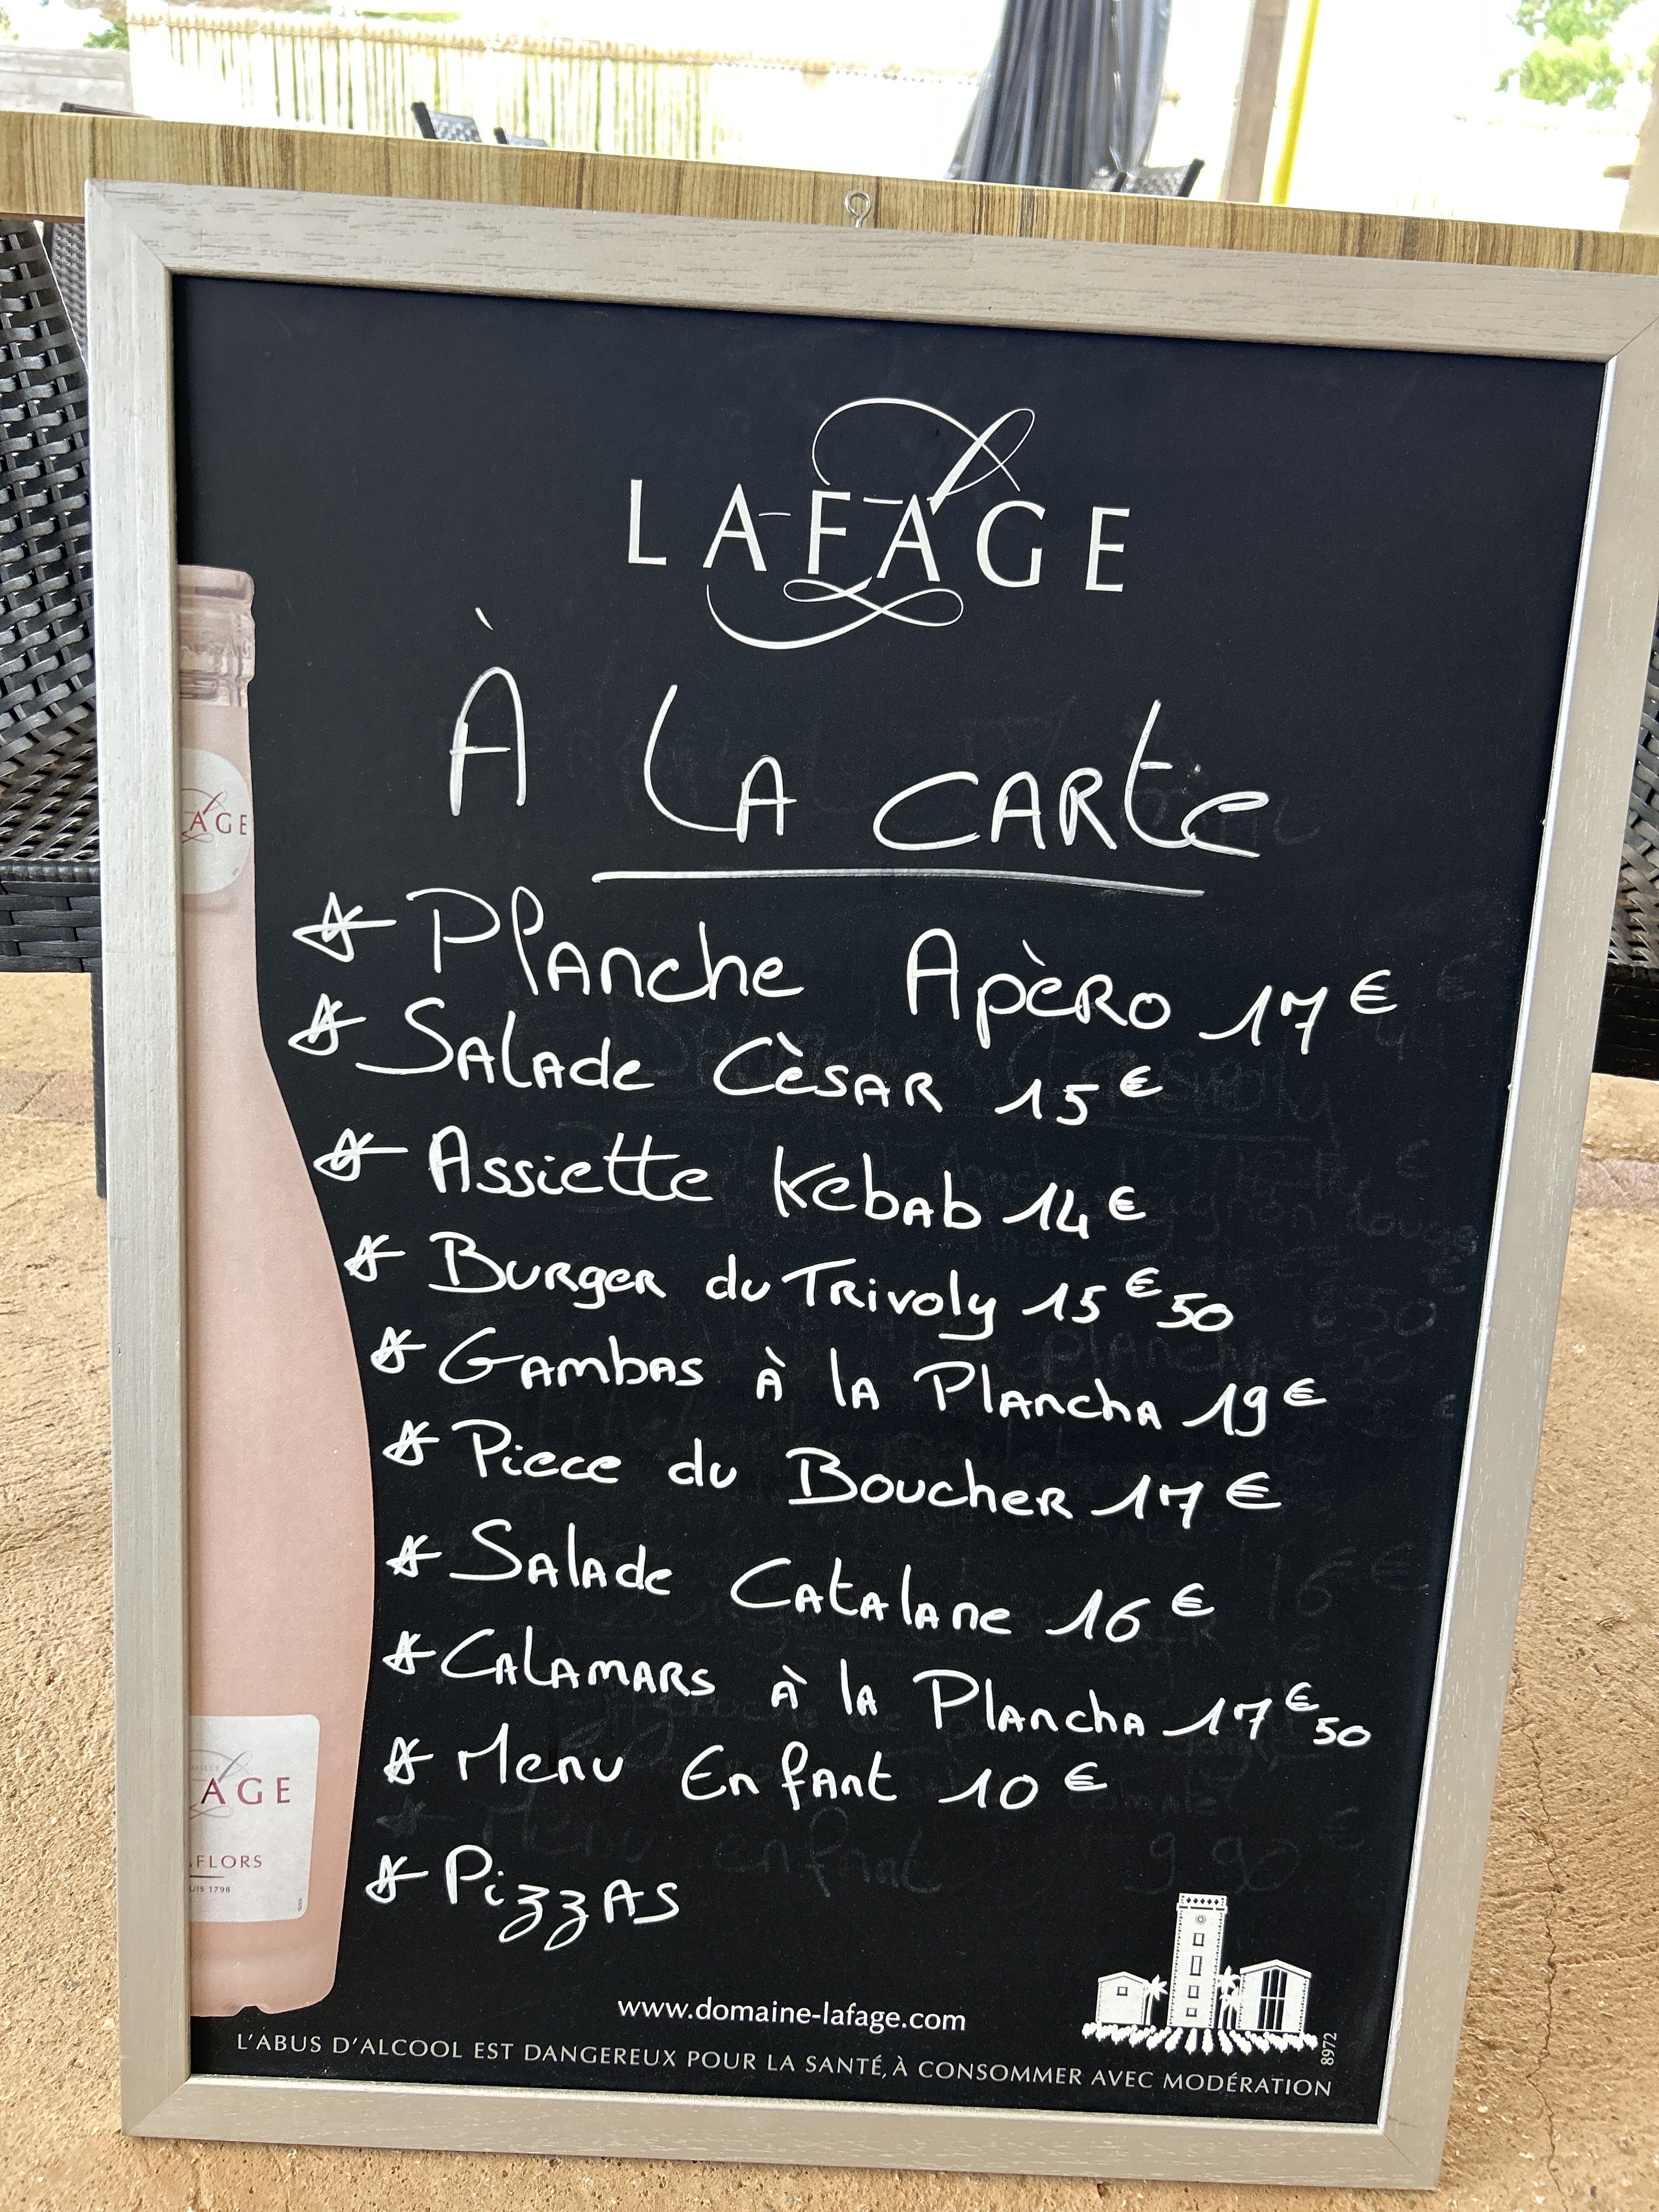 LAFAGE
À LA CARTE
Planche Apèro 17€
Salade Cèsar 15€
Assiette Kebab 14€
Burger du Trivoly 15€50
Gambas à la Plancha 19€
Piece du Boucher 17€
Salade Catalane 16€
Calamars à la Plancha 17€50
Menu Enfant 10€
Menu enfant 9.90€
Pizzas
AGE
AGE
FLORS
UIS 1798
www.domaine-lafage.com
L'ABUS D'ALCOOL EST DANGEREUX POUR LA SANTÉ, À CONSOMMER AVEC MODÉRATION
8972